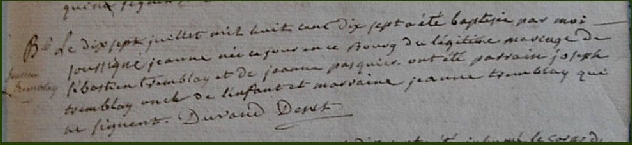 Bt Le dix sept juillet mil huit cent dix sept a été baptisée par moi
soussigné jeanne née ce jour en ce Bourg du légitime mariage de
jeanne
tremblay
sébastien tremblay et de jeanne pasquier. ont été parrain joseph
tremblay oncle de l'enfant et marraine jeanne tremblay qui
ne signent. Durand Desst